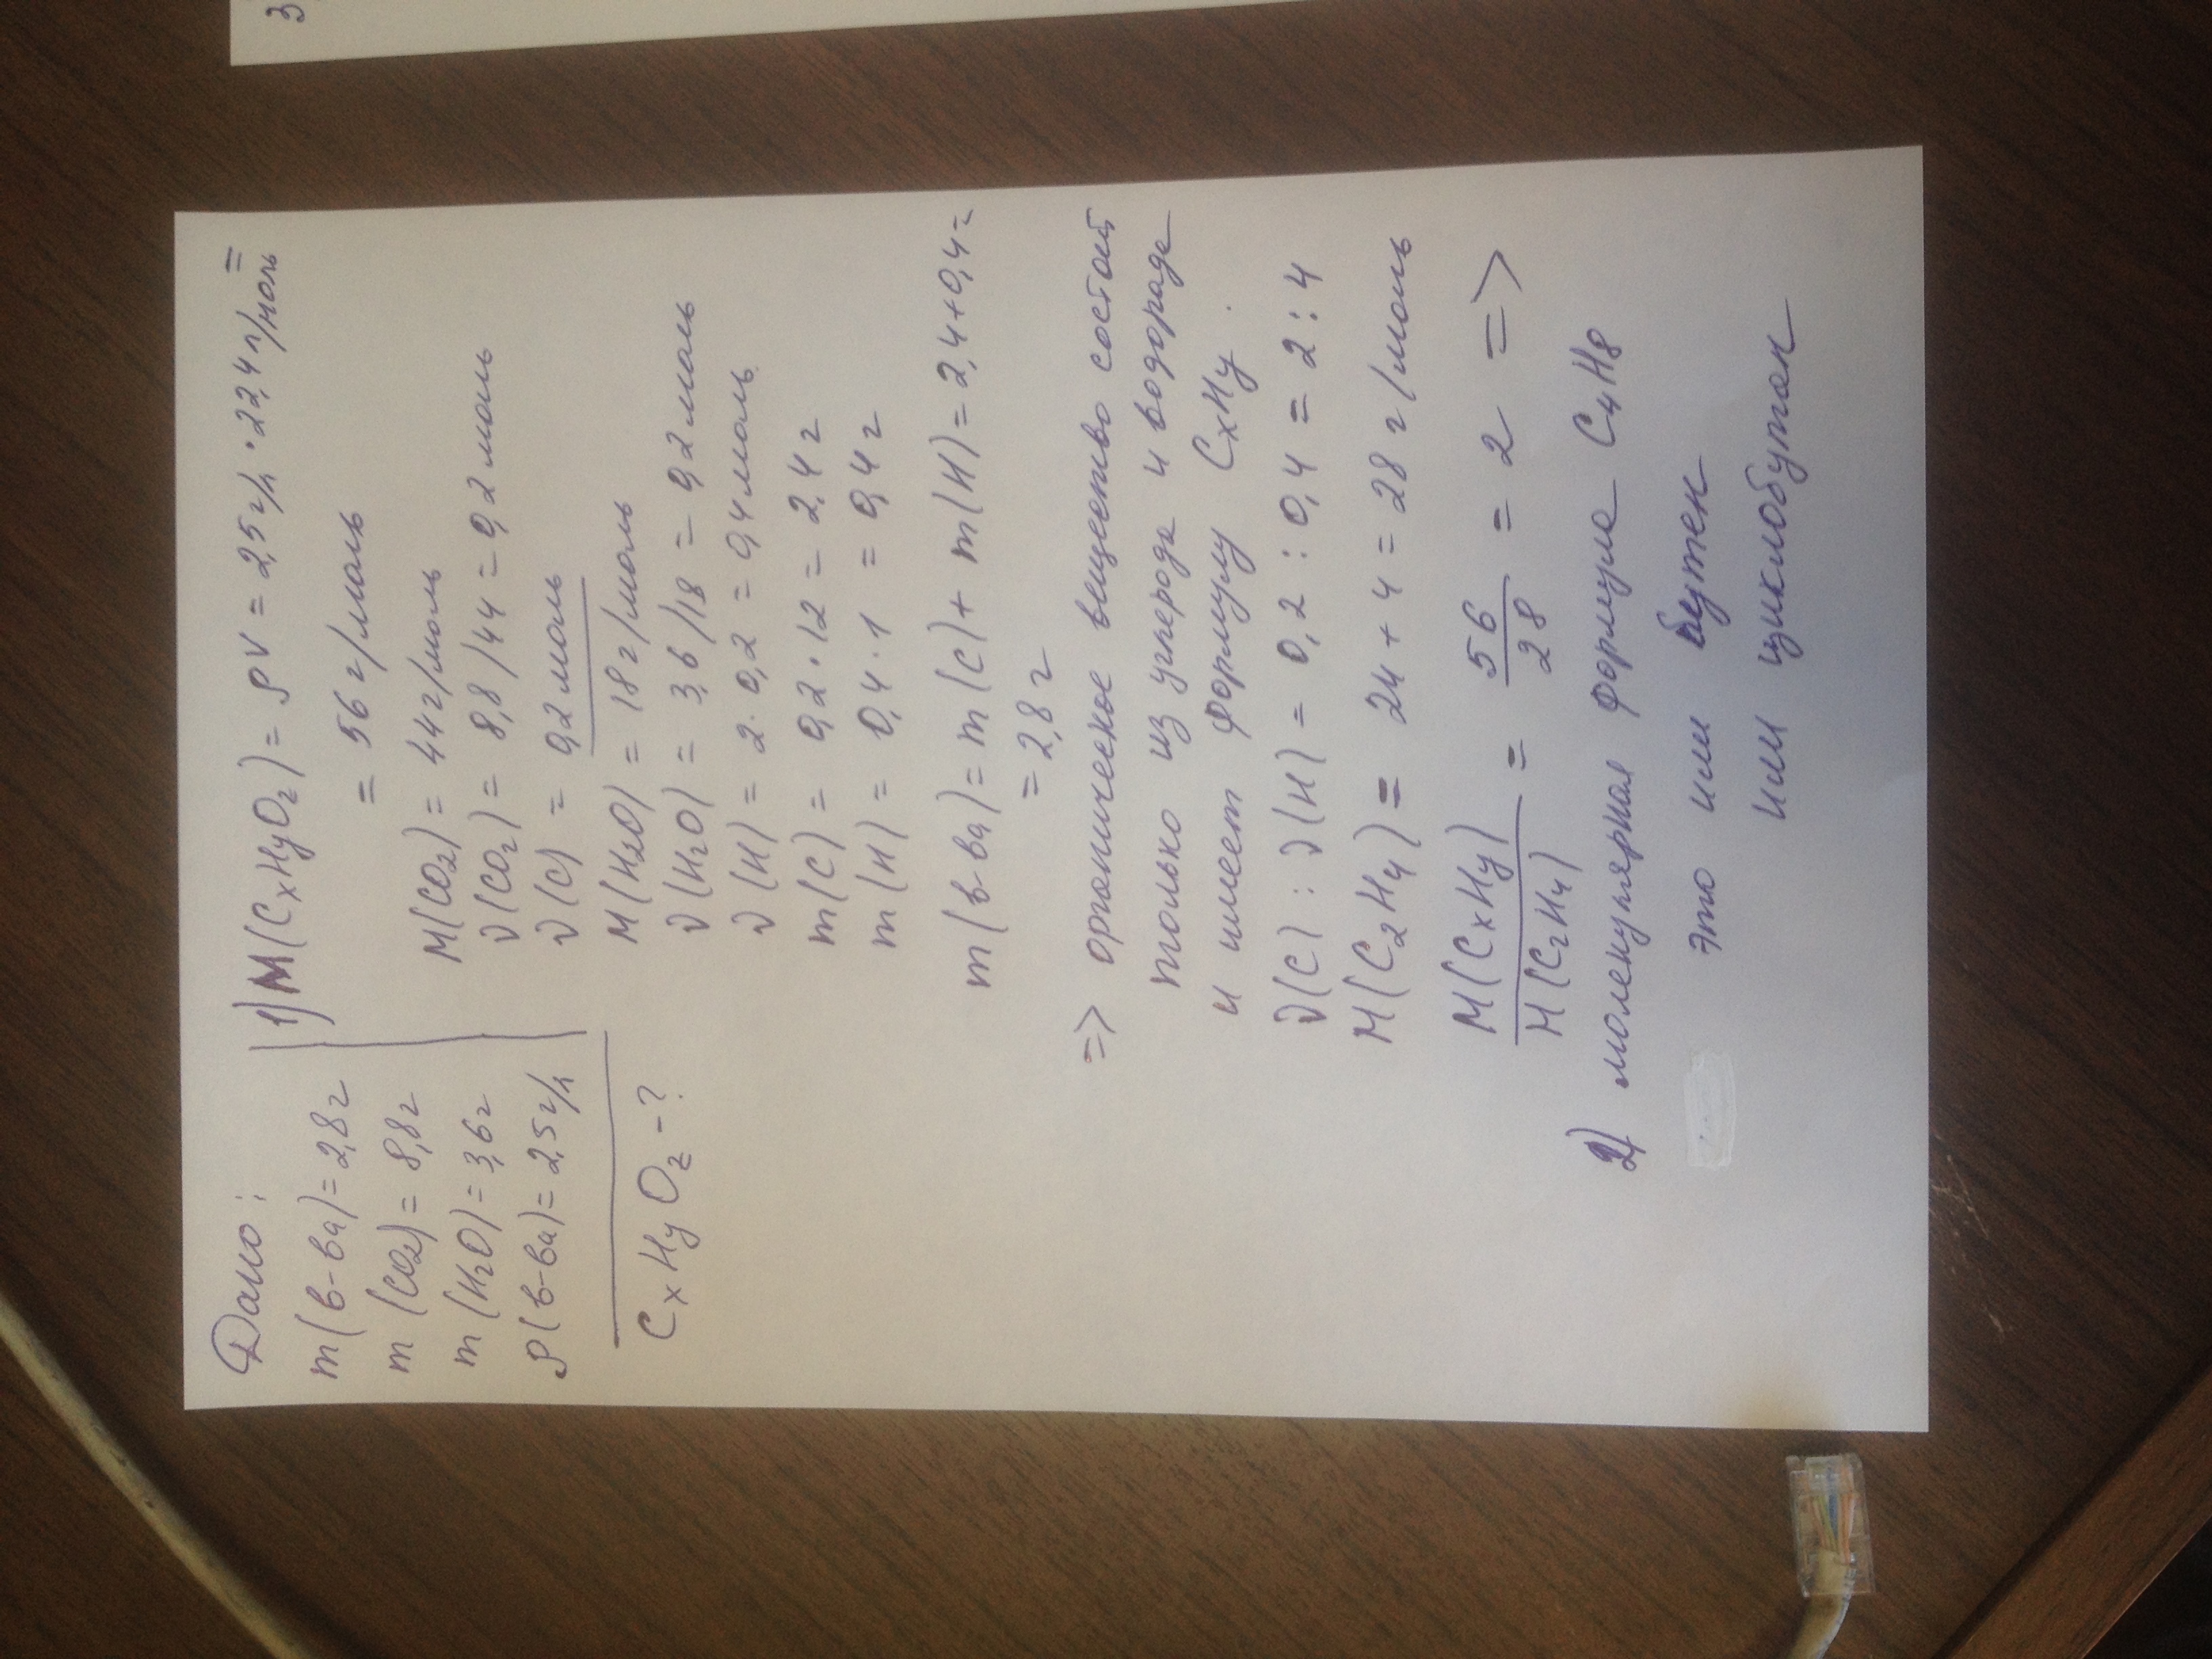 Дано:
m(в-ва)=2,8г
m(CO2)=8,8г
m(H2O)=3,6г
ρ(в-ва)=2,5г/л
CxHyOz-?
1) M(CxHyOz)=ρV=2,5г/л·22,4л/моль=
= 56г/моль
M(CO2)=44г/моль
ν(CO2)=8,8/44=0,2моль
ν(C)=0,2моль
M(H2O)=18г/моль
ν(H2O)=3,6/18=0,2моль
ν(H)=2·0,2=0,4моль
m(C)=0,2·12=2,4г
m(H)=0,4·1=0,4г
m(в-ва)=m(C)+m(H)=2,4+0,4=
=2,8г
=> органическое вещество состоит
только из углерода и водорода
и имеет формулу CxHy.
ν(C):ν(H)=0,2:0,4=2:4
M(C2H4)=24+4=28г/моль
M(CxHy)/M(C2H4)=56/28=2=>
2) молекулярная формула C4H8
это или бутен
или циклобутан
3